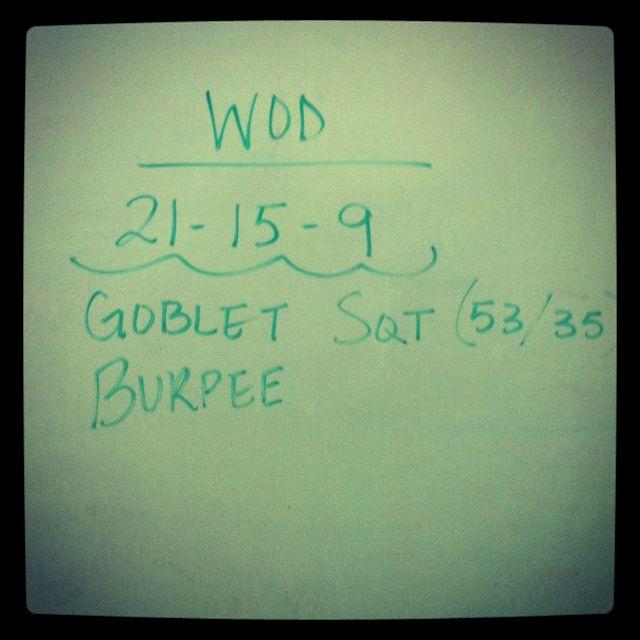 WOD
21-15-9
GOBLET SQT (53/35)
BURPEE